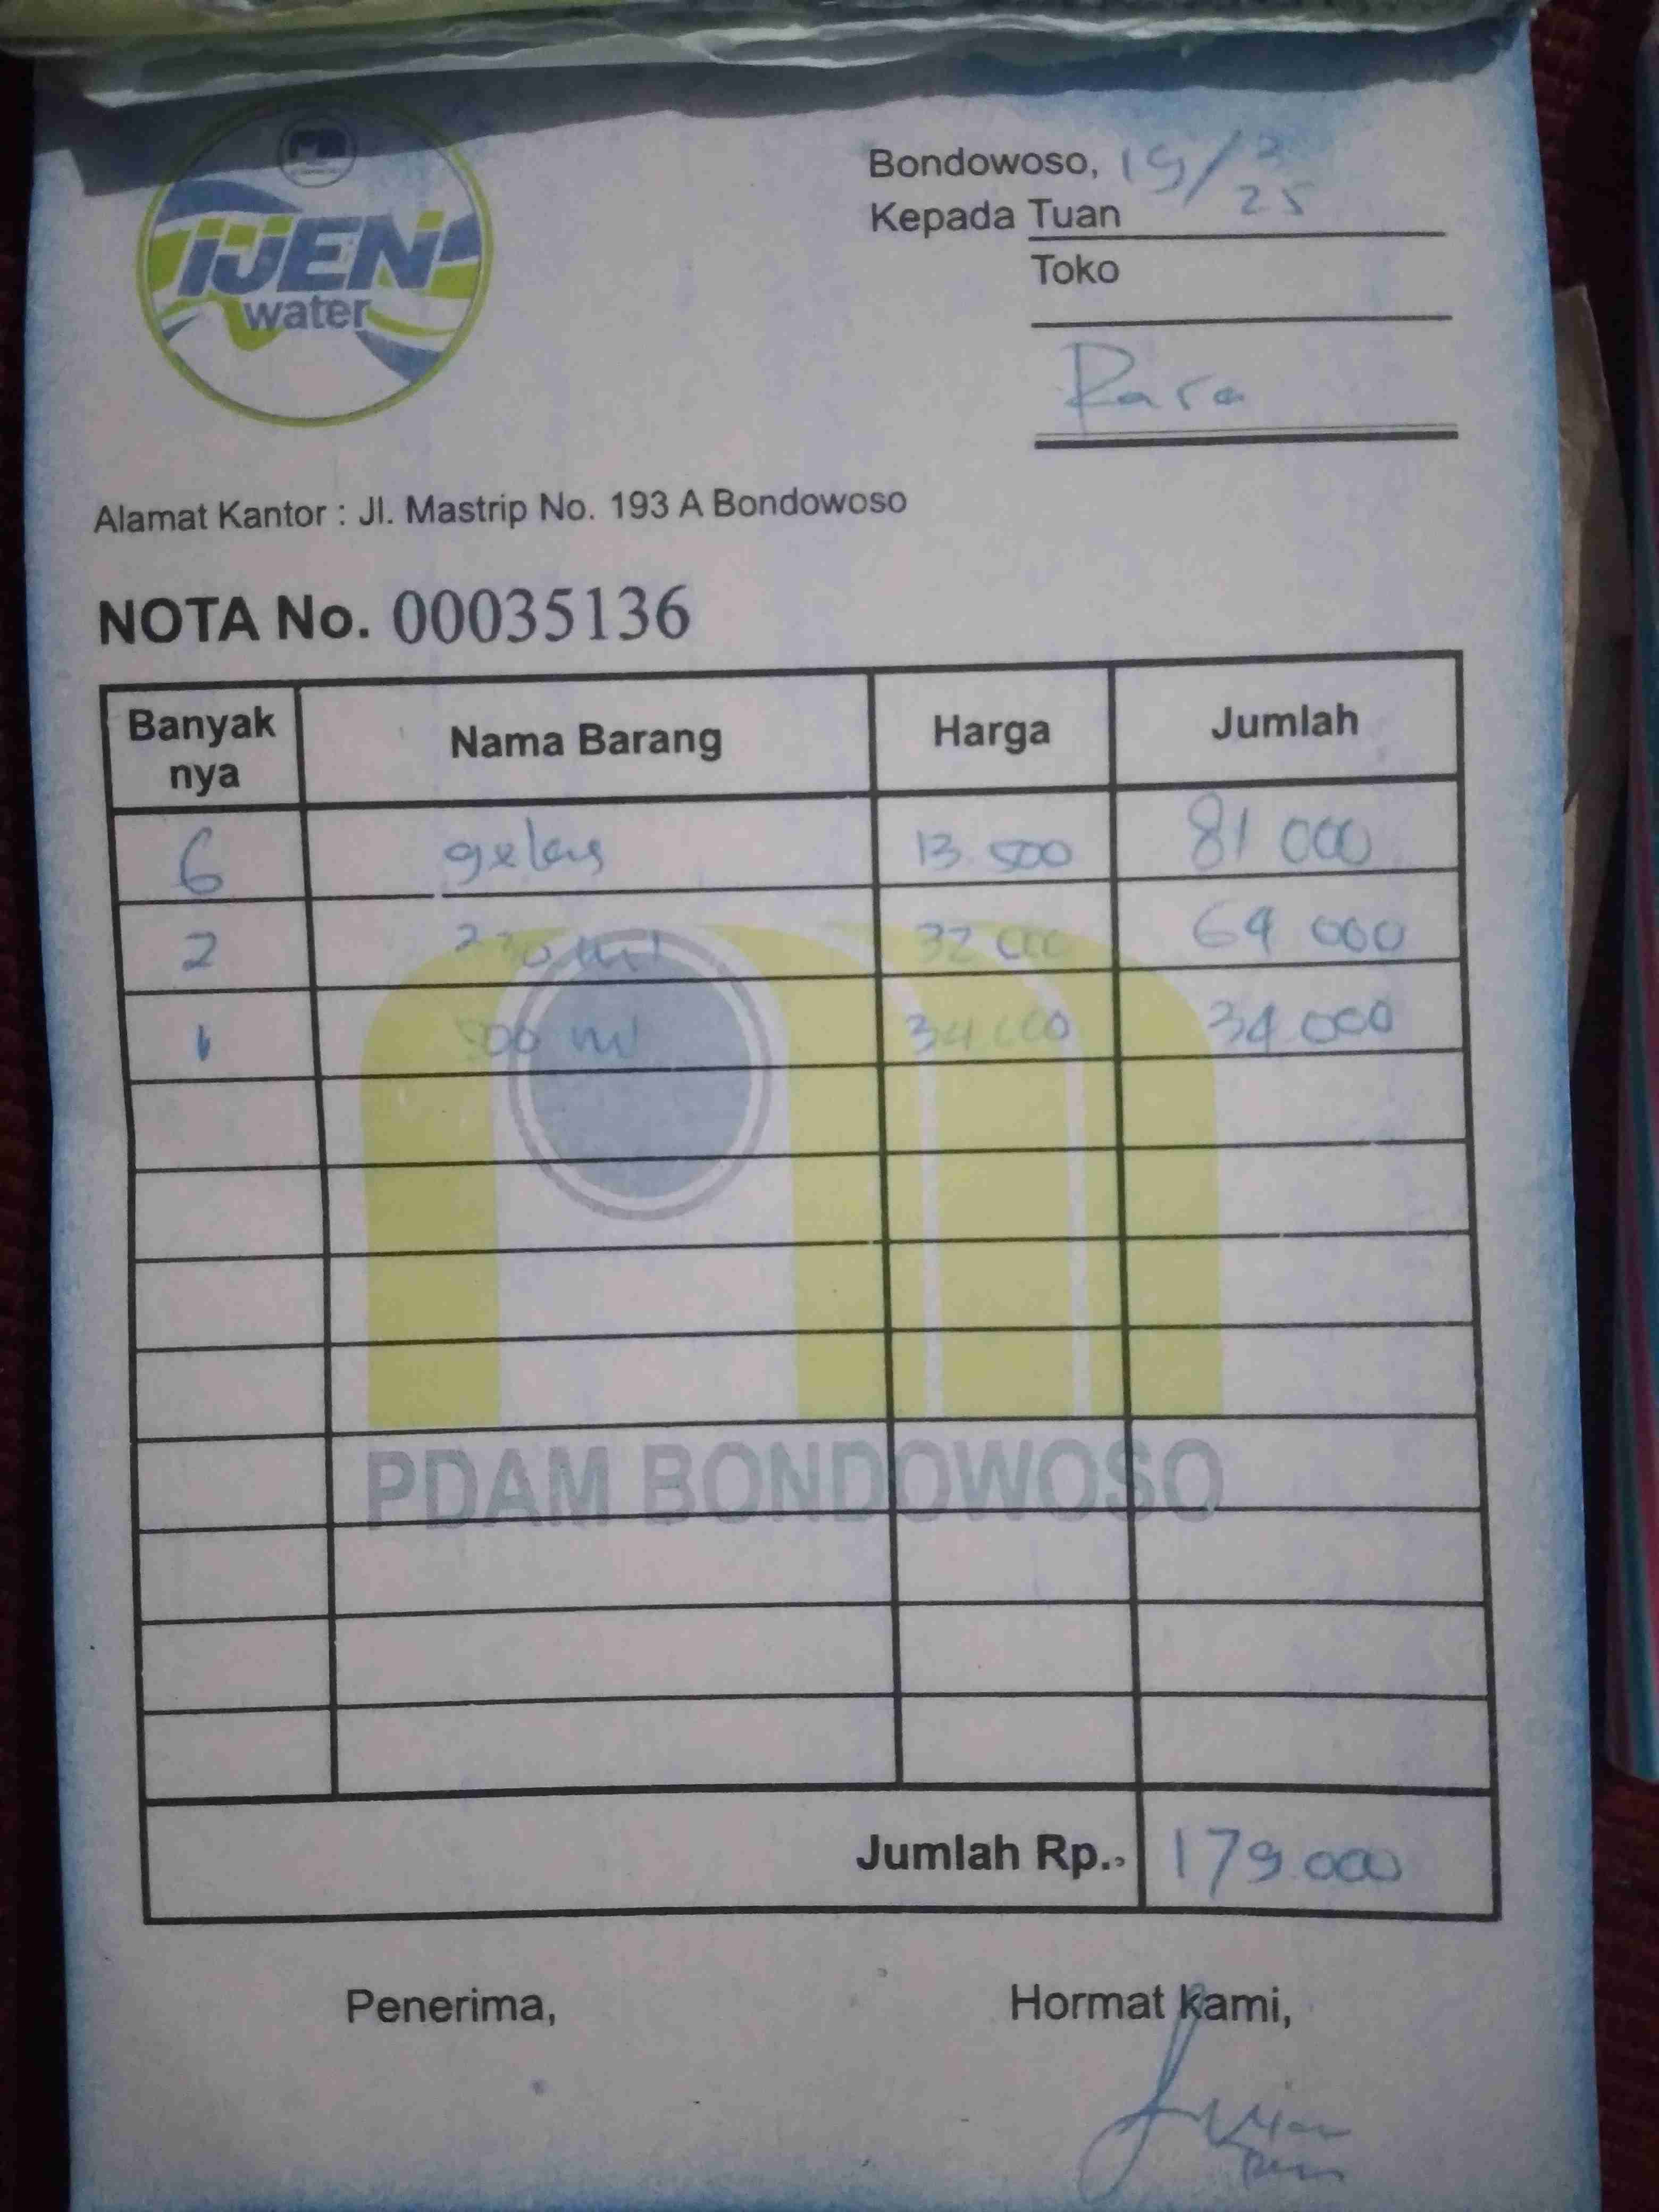 IJEN
water
Bondowoso, 19/3
25
Kepada Tuan
Toko
Rara
Alamat Kantor : Jl. Mastrip No. 193 A Bondowoso
NOTA No. 00035136
Banyak nya Nama Barang Harga Jumlah
6 gelas 13.500 81 000
2 ml 32 000 64 000
1 500 ml 34 000 34 000
PDAM BONDOWOSO
Jumlah Rp. 179.000
Penerima, Hormat Kami,